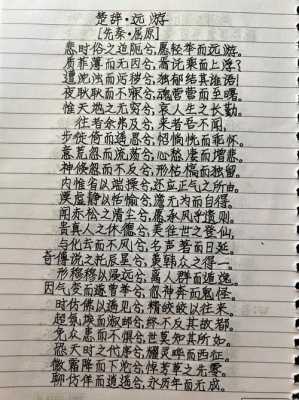 楚辞·远游
[先秦·屈原]
悲时俗之迫阨兮,愿轻举而远游。
质菲薄而无因兮,焉讬乘而上浮?
遭沈浊而污秽兮,独郁结其谁语!
夜耿耿而不寐兮,魂营营而至曙。
惟天地之无穷兮,哀人生之长勤。
往者余弗及兮,来者吾不闻。
步徙倚而遥思兮,怊惝怳而乖怀。
意荒忽而流荡兮,心愁悽而增悲。
神倏忽而不反兮,形枯槁而独留。
内惟省以端操兮,求正气之所由。
漠虚静以恬愉兮,澹无为而自得。
闻赤松之清尘兮,愿承风乎遗则。
贵真人之休德兮,美往世之登仙。
与化去而不见兮,名声著而日延。
奇傅说之托辰星兮,羡韩众之得一。
形穆穆以浸远兮,离人群而遁逸。
因气变而遂曾举兮,忽神奔而鬼怪。
时仿佛以遥见兮,精皎皎以往来。
超氛埃而淑邮兮,终不反其故都。
免众患而不惧兮,世莫知其所如。
恐天时之代序兮,耀灵晔而西征。
微霜降而下沦兮,悼芳草之先零。
聊仿佯而逍遥兮,永历年而无成。